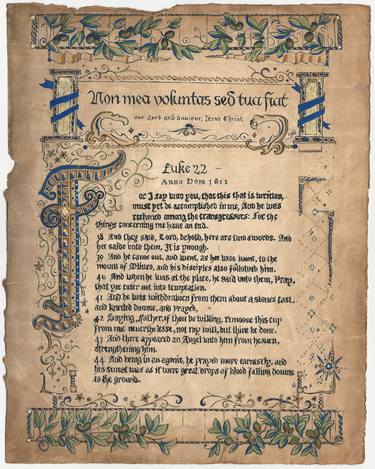 Non mea voluntas sed tua fiat
our Lord and Saviour, Jesus Christ
Luke 22
Anno Dom 1611
For I say vnto you, that this that is written,
must yet be accomplished in me, And he was
reckoned among the transgressors: For the
things concerning me haue an end.
38 And they said, Lord, behold, here are two swords. And
hee saide vnto them, It is ynough.
39 And he came out, and went, as hee was wont, to the
mount of Oliues, and his disciples also followed him.
40 And when he was at the place, he said vnto them, Pray,
that yee enter not into temptation.
41 And he was withdrawen from them about a stones cast,
and kneeled downe, and prayed,
42 Saying, Father, if thou be willing, remooue this cup
from me: neuerthelesse, not my will, but thine be done.
43 And there appeared an Angel vnto him from heauen,
strengthening him.
44 And being in an agonie, he prayed more earnestly, and
his sweat was as it were great drops of blood falling downe
to the ground.